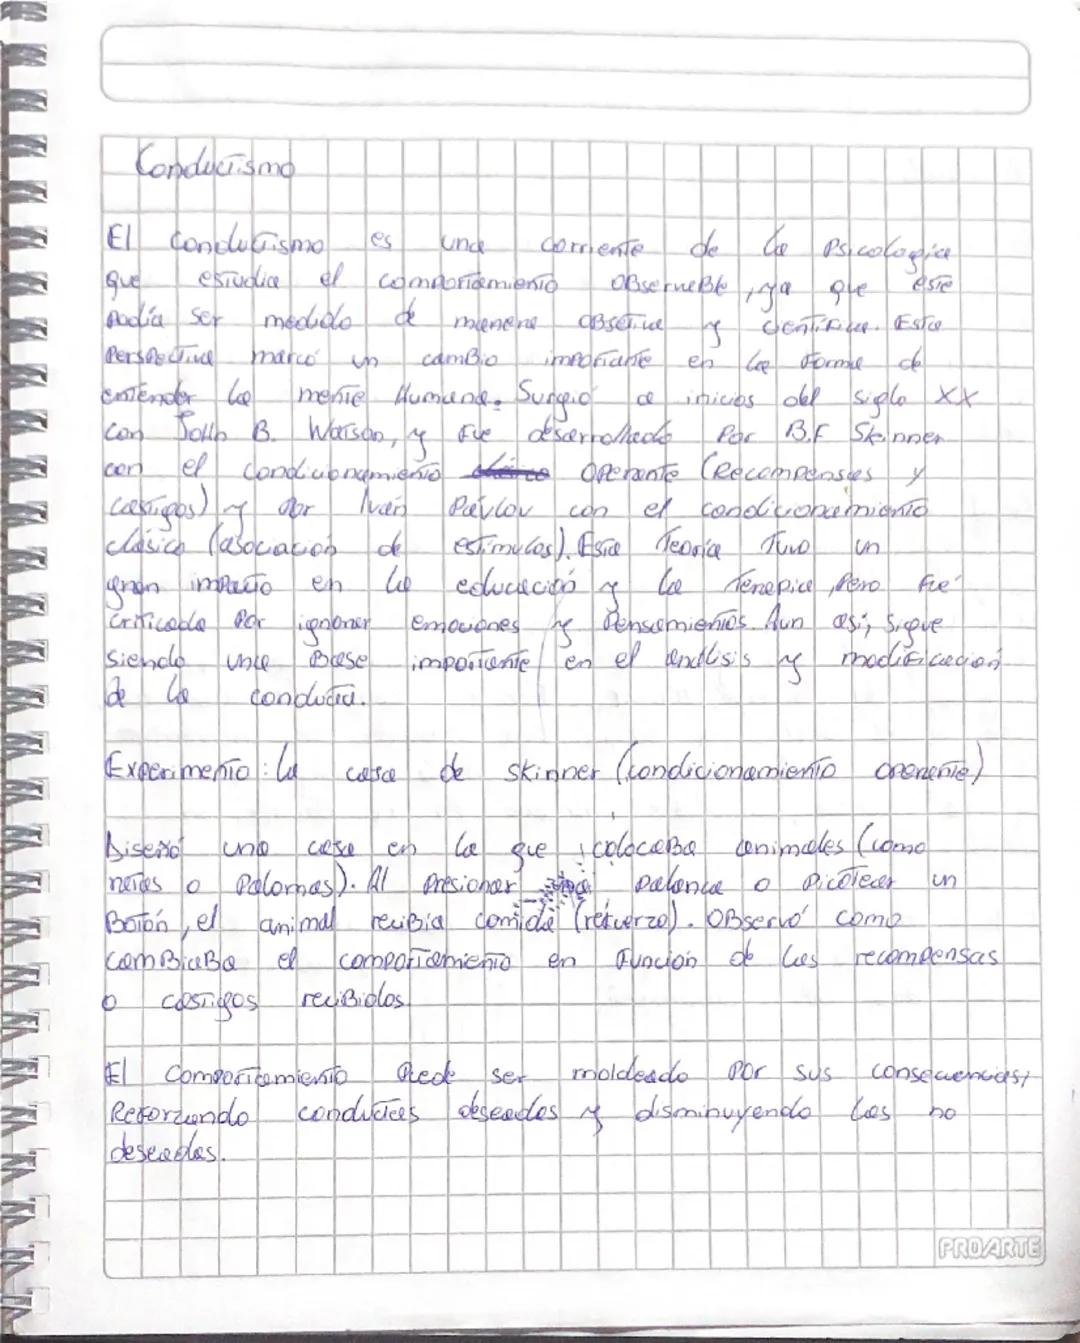 Conductismo
El Conductismo es una corriente de la Psicologica
que estudia el comportamiento observable, ya que este
podía ser medido de manera objetiva y científica. Esta
Perspectiva marcó un cambio importante en la forma de
entender la mente Humana. Surgió a inicios del siglo XX
con John B. Watson, y fue desarrollado por B.F Skinner
con el condicionamiento operante (Recompensas y
castigos) y por Iván Pávlov con el condicionamiento
clásico (asociación de estímulos). Esta Teoría Tuvo un
gran impacto en la educación y la Terapia, Pero fué
criticada Por ignorar emociones y Pensamientos. Aun así, sigue
siendo una Base importante en el análisis y modificación
de la conducta.
Experimento: La casa de skinner (condicionamiento operante)
Diseñó una casa en la que colocaba animales (como
ratas o Palomas). Al presionar una palanca o Picotear un
Botón, el animal recibía comida (refuerzo). OBservó como
cambiaBa el comportamiento en función de las recompensas
o castigos reciBidos.
El comportamiento Puede ser moldeado por sus consecuencias,
Reforzando conductas deseadas y disminuyendo las no
deseadas.
PROARTE